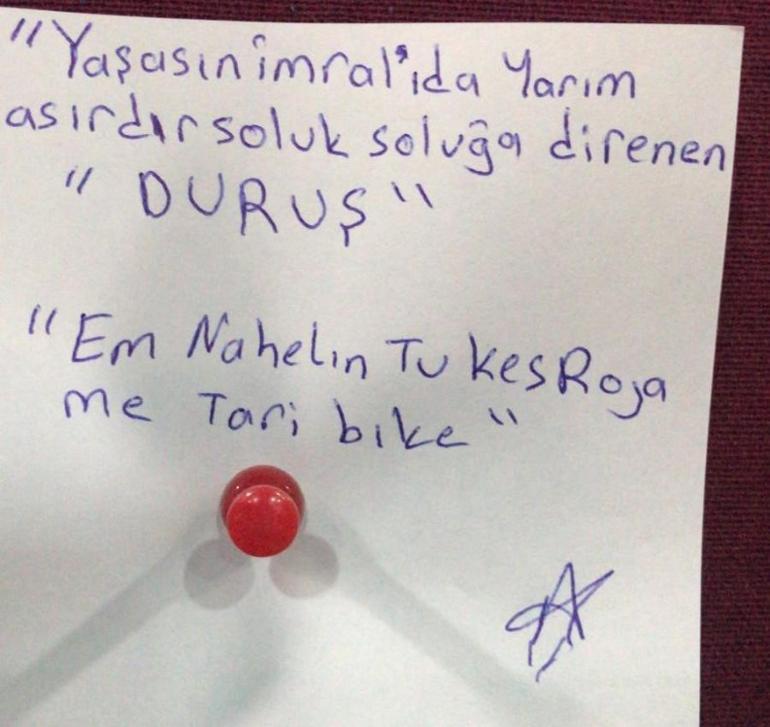 "Yaşasın imral'ida Yarım
asırdır soluk soluğa direnen
" DURUŞ "
"Em Nahelın Tu kes Roja
me Tari bike"